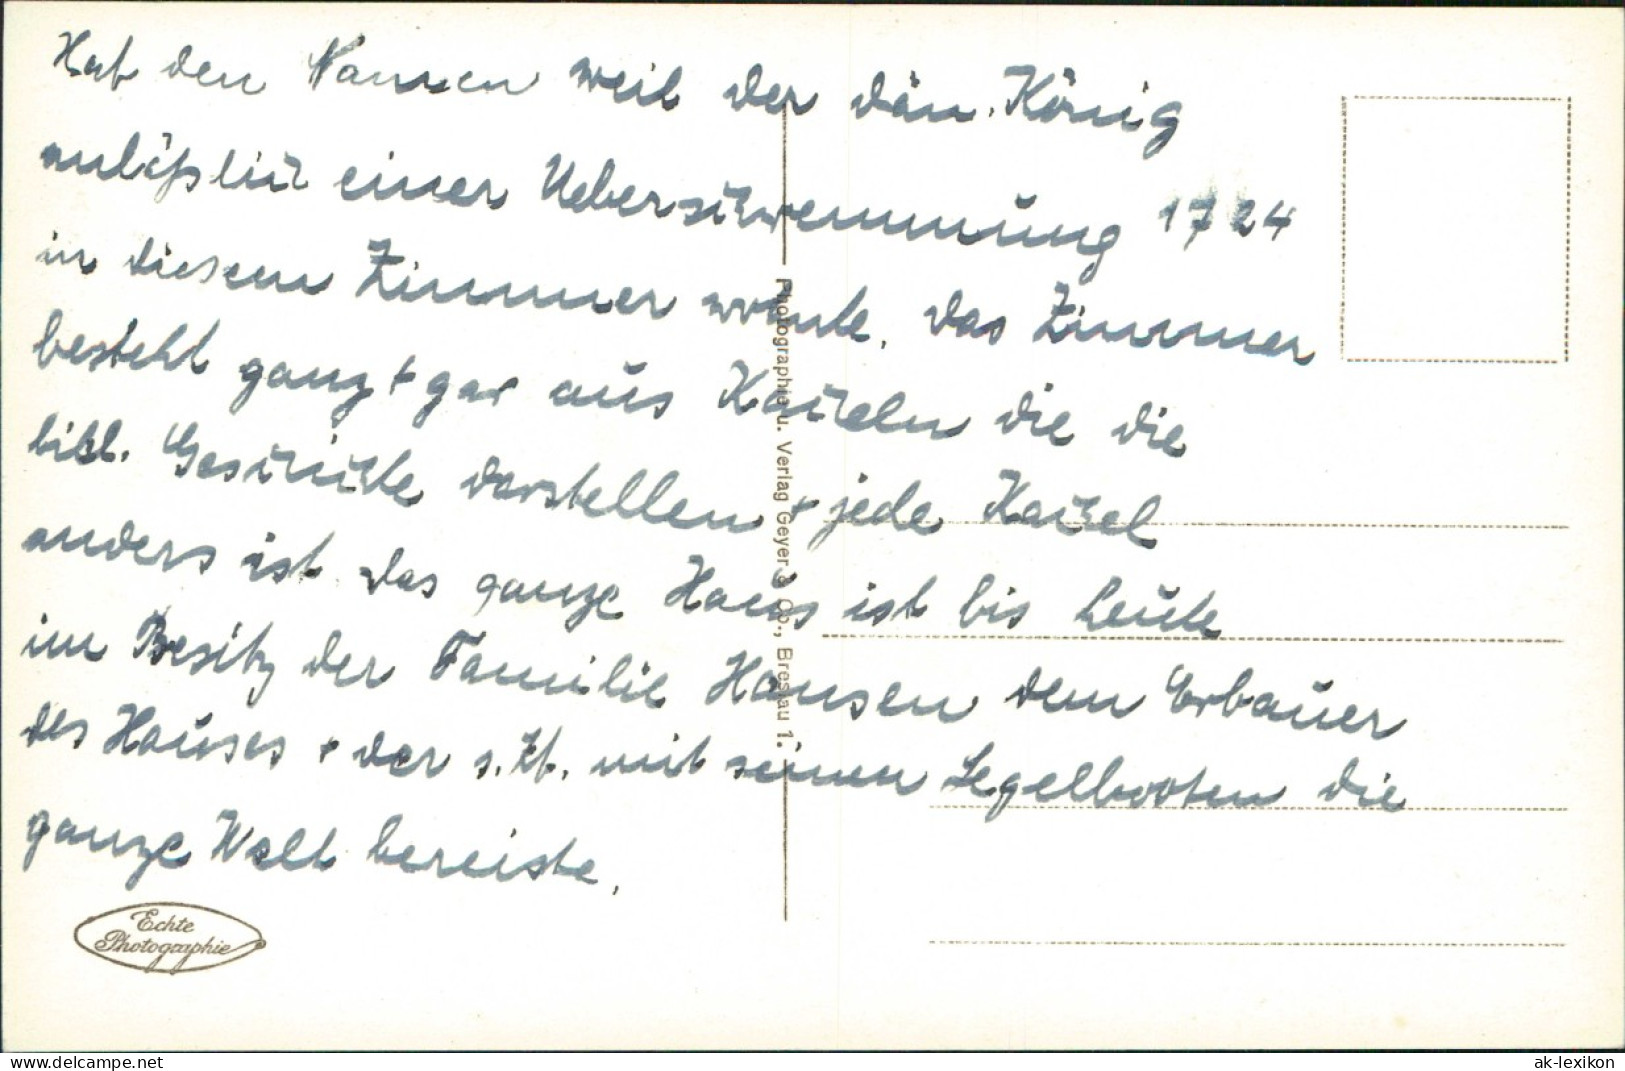 Hat den Namen weil der dän. König
anläßlich einer Ueberschwemmung 1724
in diesem Zimmer wohnte. Das Zimmer
besteht ganz + gar aus Kacheln die die
bibl. Geschichte darstellen + jede Kachel
anders ist. Das ganze Haus ist bis heute
im Besitz der Familie Hansen dem Erbauer
des Hauses + der s. Zt. mit seinen Segelbooten die
ganze Welt bereiste.
Photographie u. Verlag Geyer & Co., Breslau 1.
Echte
Photographie
https://www.delcampe.net
ak-lexikon